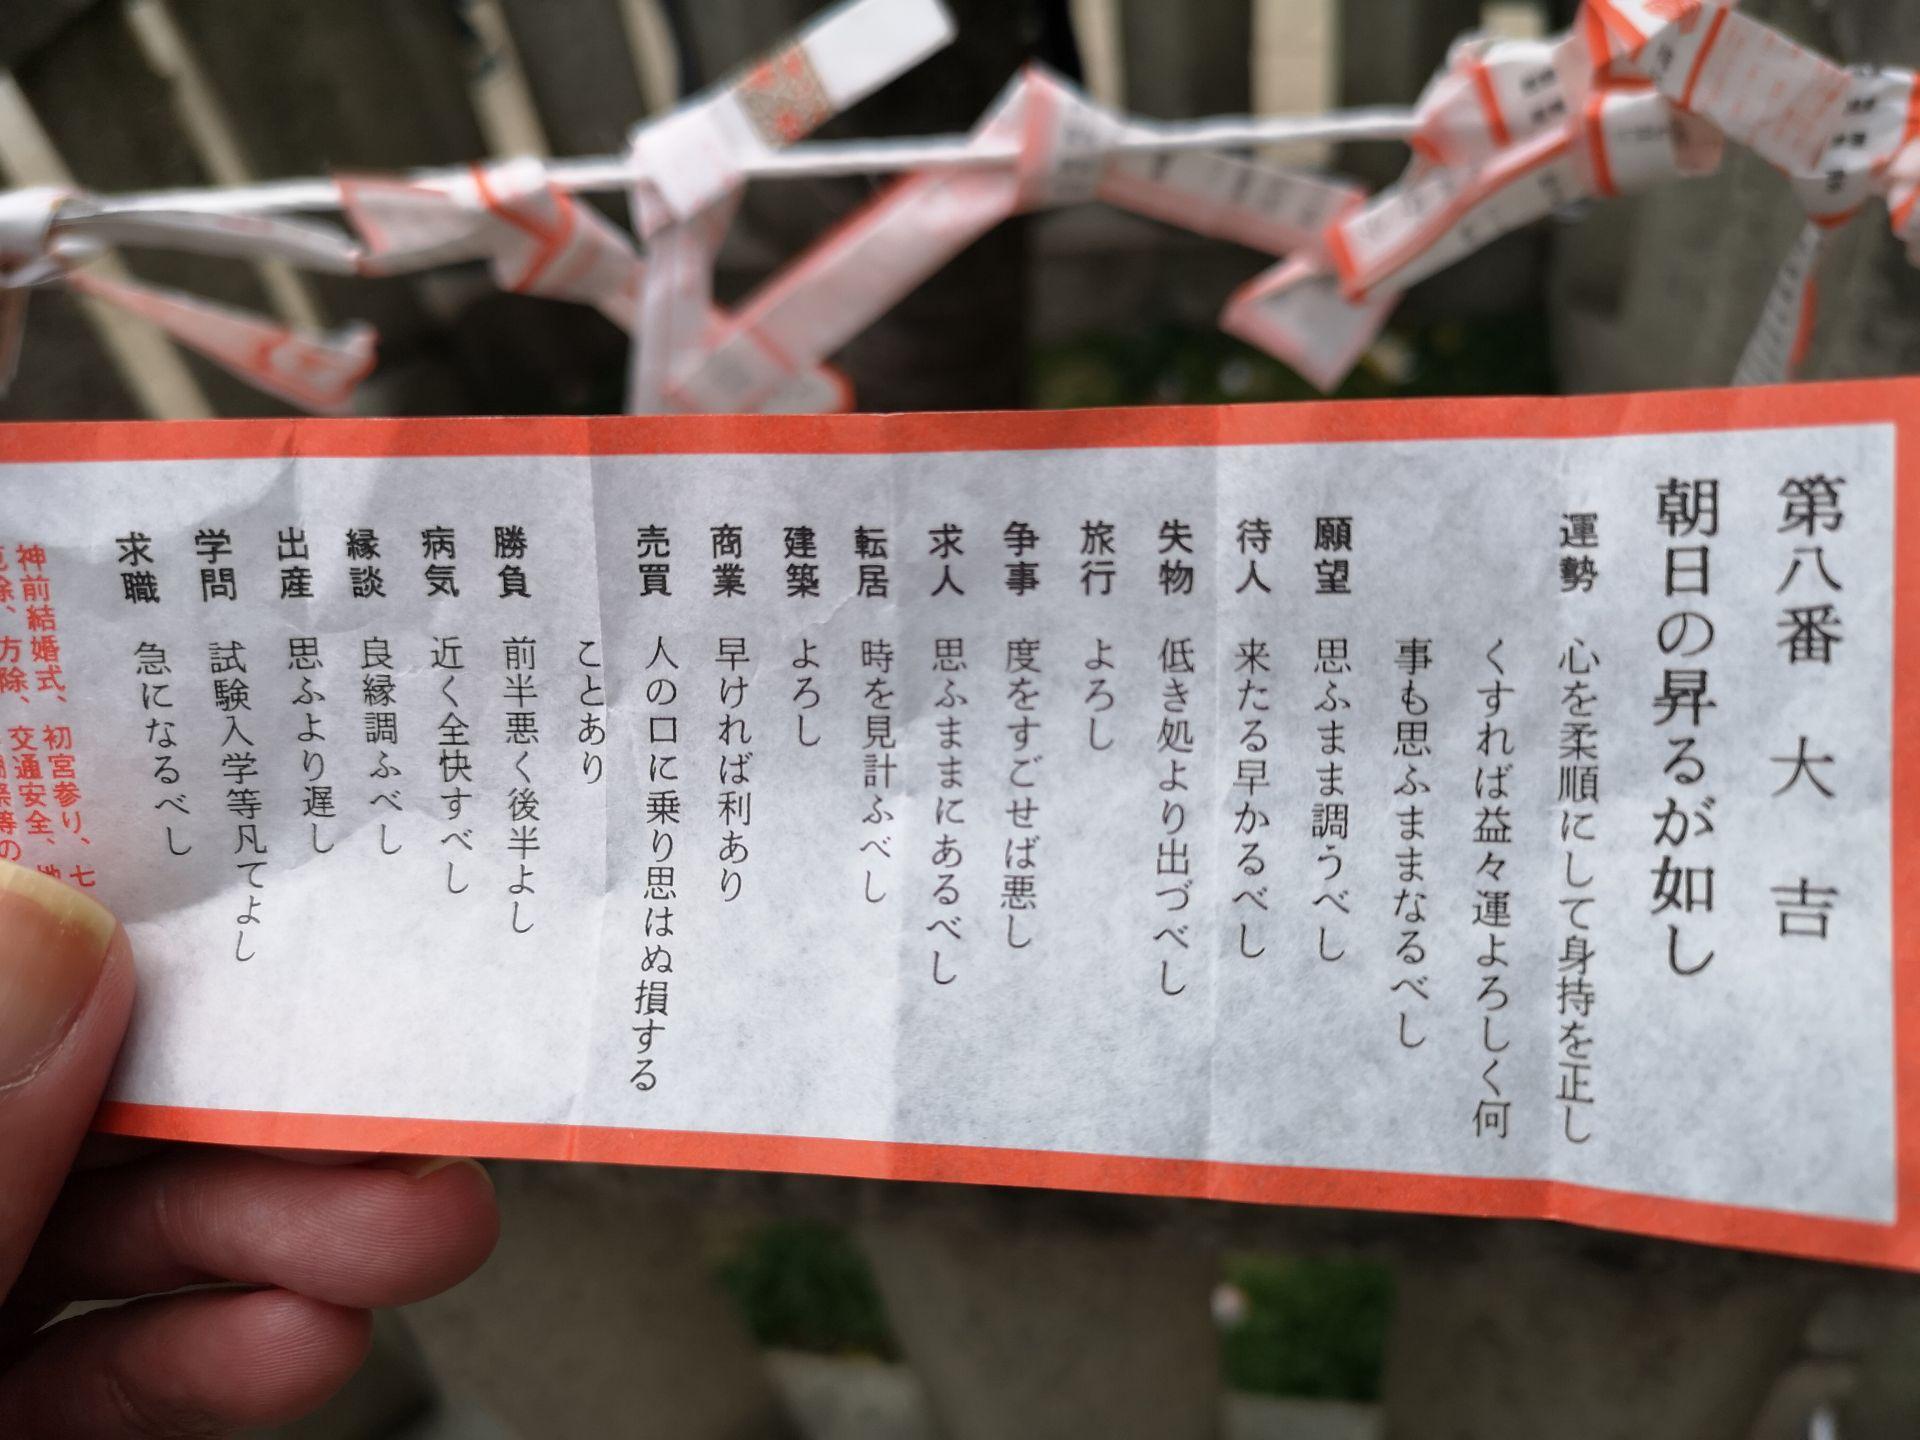 第八番 大吉
朝日の昇るが如し
運勢 心を柔順にして身持を正し
くすれば益々運よろしく何
事も思ふままなるべし
願望 思ふまま調うべし
待人 来たる早かるべし
失物 低き処より出づべし
旅行 よろし
争事 度をすごせば悪し
求人 思ふままにあるべし
転居 時を見計ふべし
建築 よろし
商業 早ければ利あり
売買 人の口に乗り思はぬ損する
ことあり
勝負 前半悪く後半よし
病気 近く全快すべし
縁談 良縁調ふべし
出産 思ふより遅し
学問 試験入学等凡てよし
求職 急になるべし
神前結婚式、初宮参り、七
除、方除、交通安全、地
等の